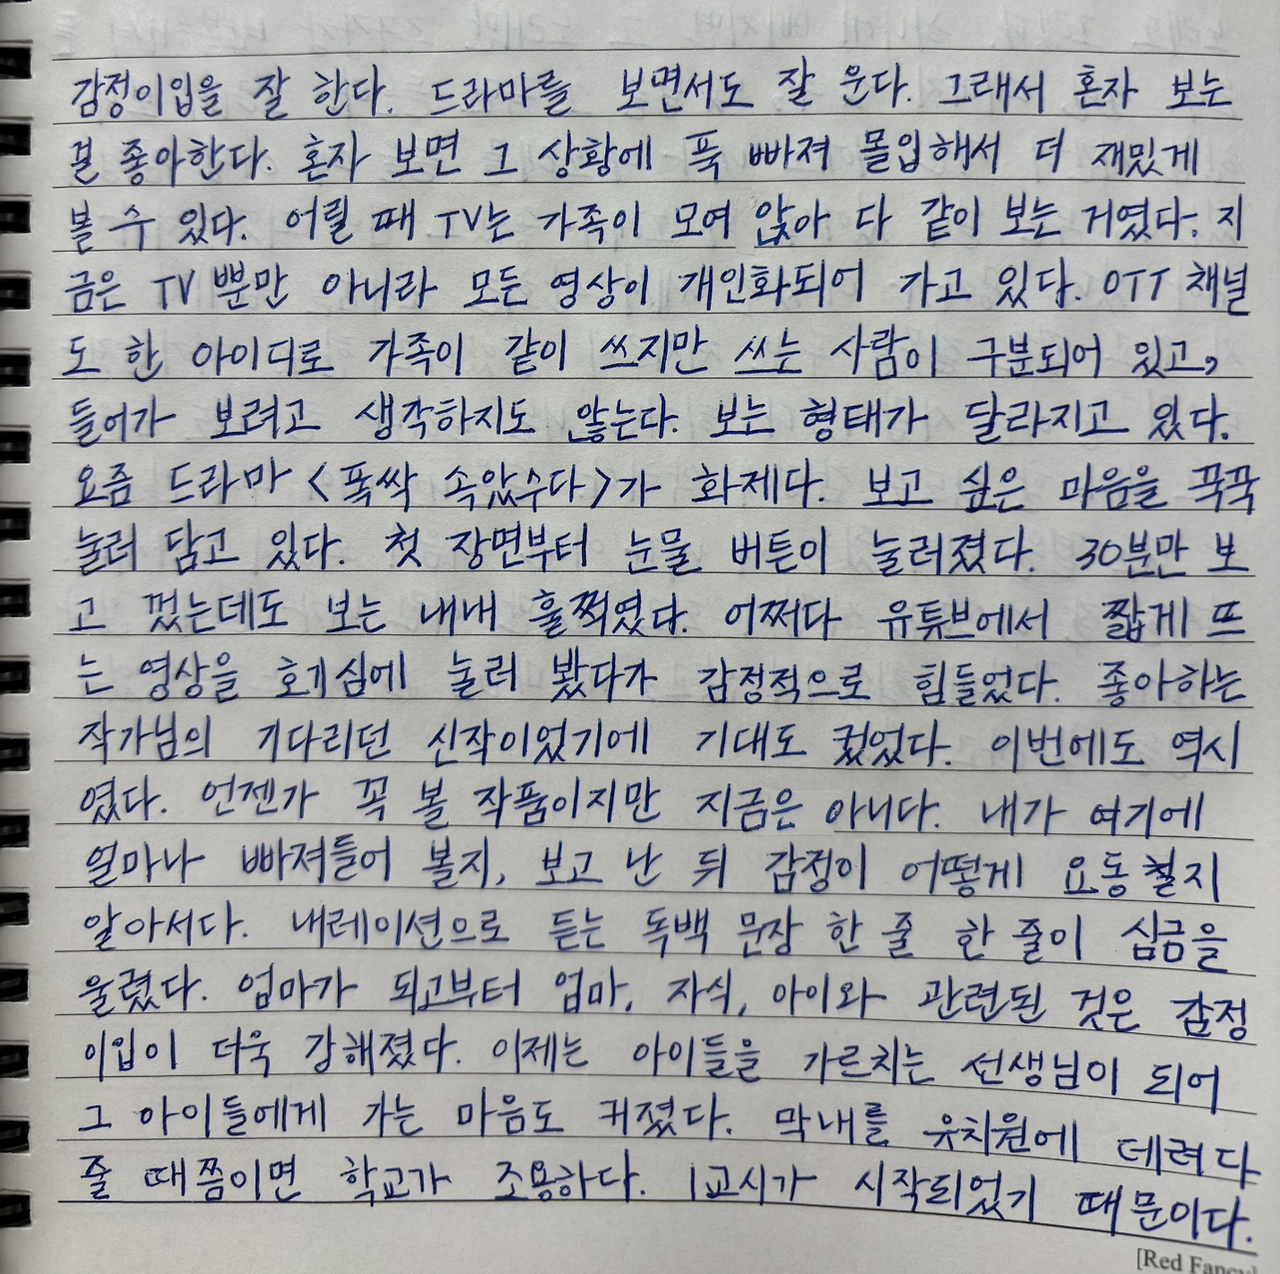 감정이입을 잘 한다. 드라마를 보면서도 잘 운다. 그래서 혼자 보는
걸 좋아한다. 혼자 보면 그 상황에 푹 빠져 몰입해서 더 재밌게
볼 수 있다. 어릴 때 TV는 가족이 모여 앉아 다 같이 보는 거였다. 지
금은 TV 뿐만 아니라 모든 영상이 개인화되어 가고 있다. OTT 채널
도 한 아이디로 가족이 같이 쓰지만 쓰는 사람이 구분되어 있고,
들어가 보려고 생각하지도 않는다. 보는 형태가 달라지고 있다.
요즘 드라마 <폭싹 속았수다>가 화제다. 보고 싶은 마음을 꾹꾹
눌러 담고 있다. 첫 장면부터 눈물 버튼이 눌러졌다. 30분만 보
고 껐는데도 보는 내내 훌쩍였다. 어쩌다 유튜브에서 짧게 뜨
는 영상을 호기심에 눌러 봤다가 감정적으로 힘들었다. 좋아하는
작가님의 기다리던 신작이었기에 기대도 컸었다. 이번에도 역시
였다. 언젠가 꼭 볼 작품이지만 지금은 아니다. 내가 여기에
얼마나 빠져들어 볼지, 보고 난 뒤 감정이 어떻게 요동칠지
알아서다. 내레이션으로 듣는 독백 문장 한 줄 한 줄이 심금을
울렸다. 엄마가 되고부터 엄마, 자식, 아이와 관련된 것은 감정
이입이 더욱 강해졌다. 이제는 아이들을 가르치는 선생님이 되어
그 아이들에게 가는 마음도 커졌다. 막내를 유치원에 데려다
줄 때쯤이면 학교가 조용하다. 1교시가 시작되었기 때문이다.
[Red Fancy]